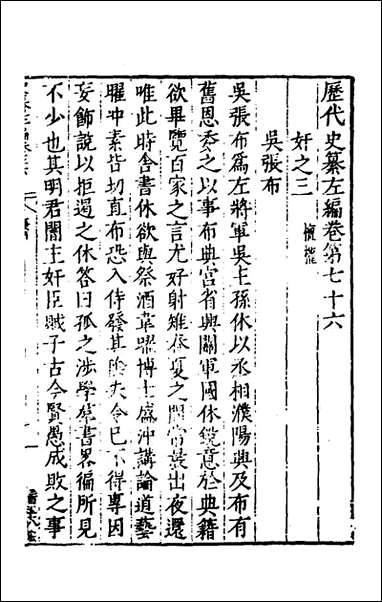 歷代史纂左編卷第七十六
奸之三 權寵
吳張布
吳張布爲左將軍吳主孫休以丞相濮陽興及布有
舊恩委之以事布典宮省興關軍國休銳意於典籍
欲畢覽百家之言尤好射雉春夏之間常晨出夜還
唯此時舍書休欲與祭酒韋曜博士盛沖講論道藝
曜沖素皆切直布恐入侍發其陰失令已不得專因
妄飾說以拒遏之休答曰孤之涉學羣書畧徧所見
不少也其明君闇主奸臣賊子古今賢愚成敗之事